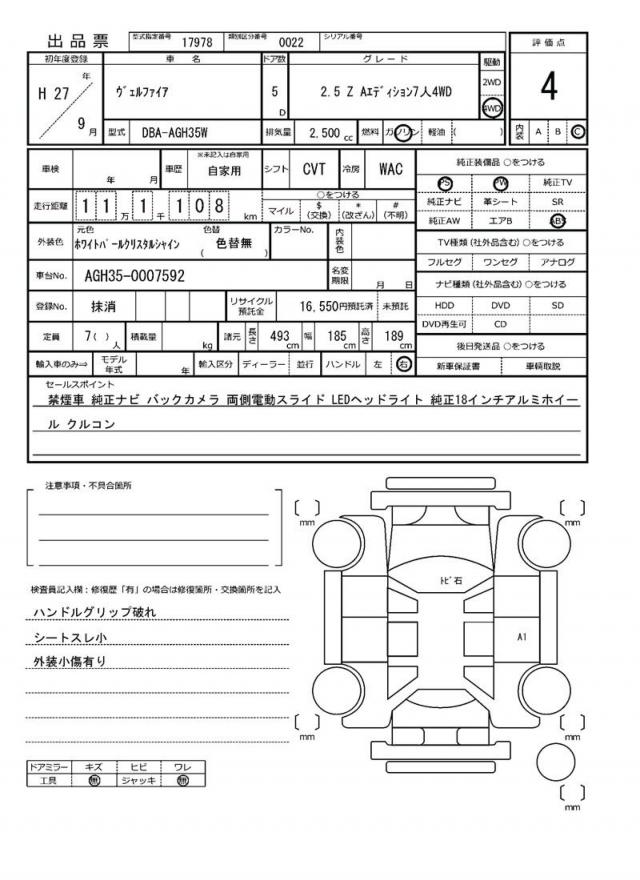 出品票 型式指定番号 17978 類別区分番号 0022 シリアル番号
初年度登録 車 名 ドア数 グレード 駆動 評価点
H 27 年 9 月 ヴェルファイア 5 D 2.5 Z Aエディション7人4WD 2WD 4WD 4
型式 DBA-AGH35W 排気量 2,500 cc 燃料 ガソリン 軽油 ( ) 内装 A B C
車検 年 月 車歴 ※未記入は自家用 自家用 シフト CVT 冷房 WAC
純正装備品 ○をつける
PS PW 純正TV
純正ナビ 革シート SR
純正AW エアB ABS
走行距離 1 1 万 1 千 1 0 8 km ○をつける
マイル $ (交換) * (改ざん) # (不明)
外装色 元色 ホワイトパールクリスタルシャイン 色替 ( 色替無 ) カラーNo. 内装色
TV種類 (社外品含む) ○をつける
フルセグ ワンセグ アナログ
車台No. AGH35-0007592 名変期限 月 日
ナビ種類 (社外品含む) ○をつける
HDD DVD SD
DVD再生可 CD
登録No. 抹消 リサイクル預託金 16,550円預託済 未預託
定員 7( ) 人 積載量 kg 諸元 長さ 493 cm 幅 185 cm 高さ 189 cm
後日発送品 ○をつける
新車保証書 車輌取説
輸入車のみ⇒ モデル年式 年 輸入区分 ディーラー 並行 ハンドル 左 右
セールスポイント
禁煙車 純正ナビ バックカメラ 両側電動スライド LEDヘッドライト 純正18インチアルミホイー
ル クルコン
注意事項・不具合箇所
検査員記入欄：修復歴「有」の場合は修復箇所・交換箇所を記入
ハンドルグリップ破れ
シートスレ小
外装小傷有り
ドアミラー キズ ヒビ ワレ
工具 無 ジャッキ 無
mm
mm
トビ石
A1
mm
mm
mm